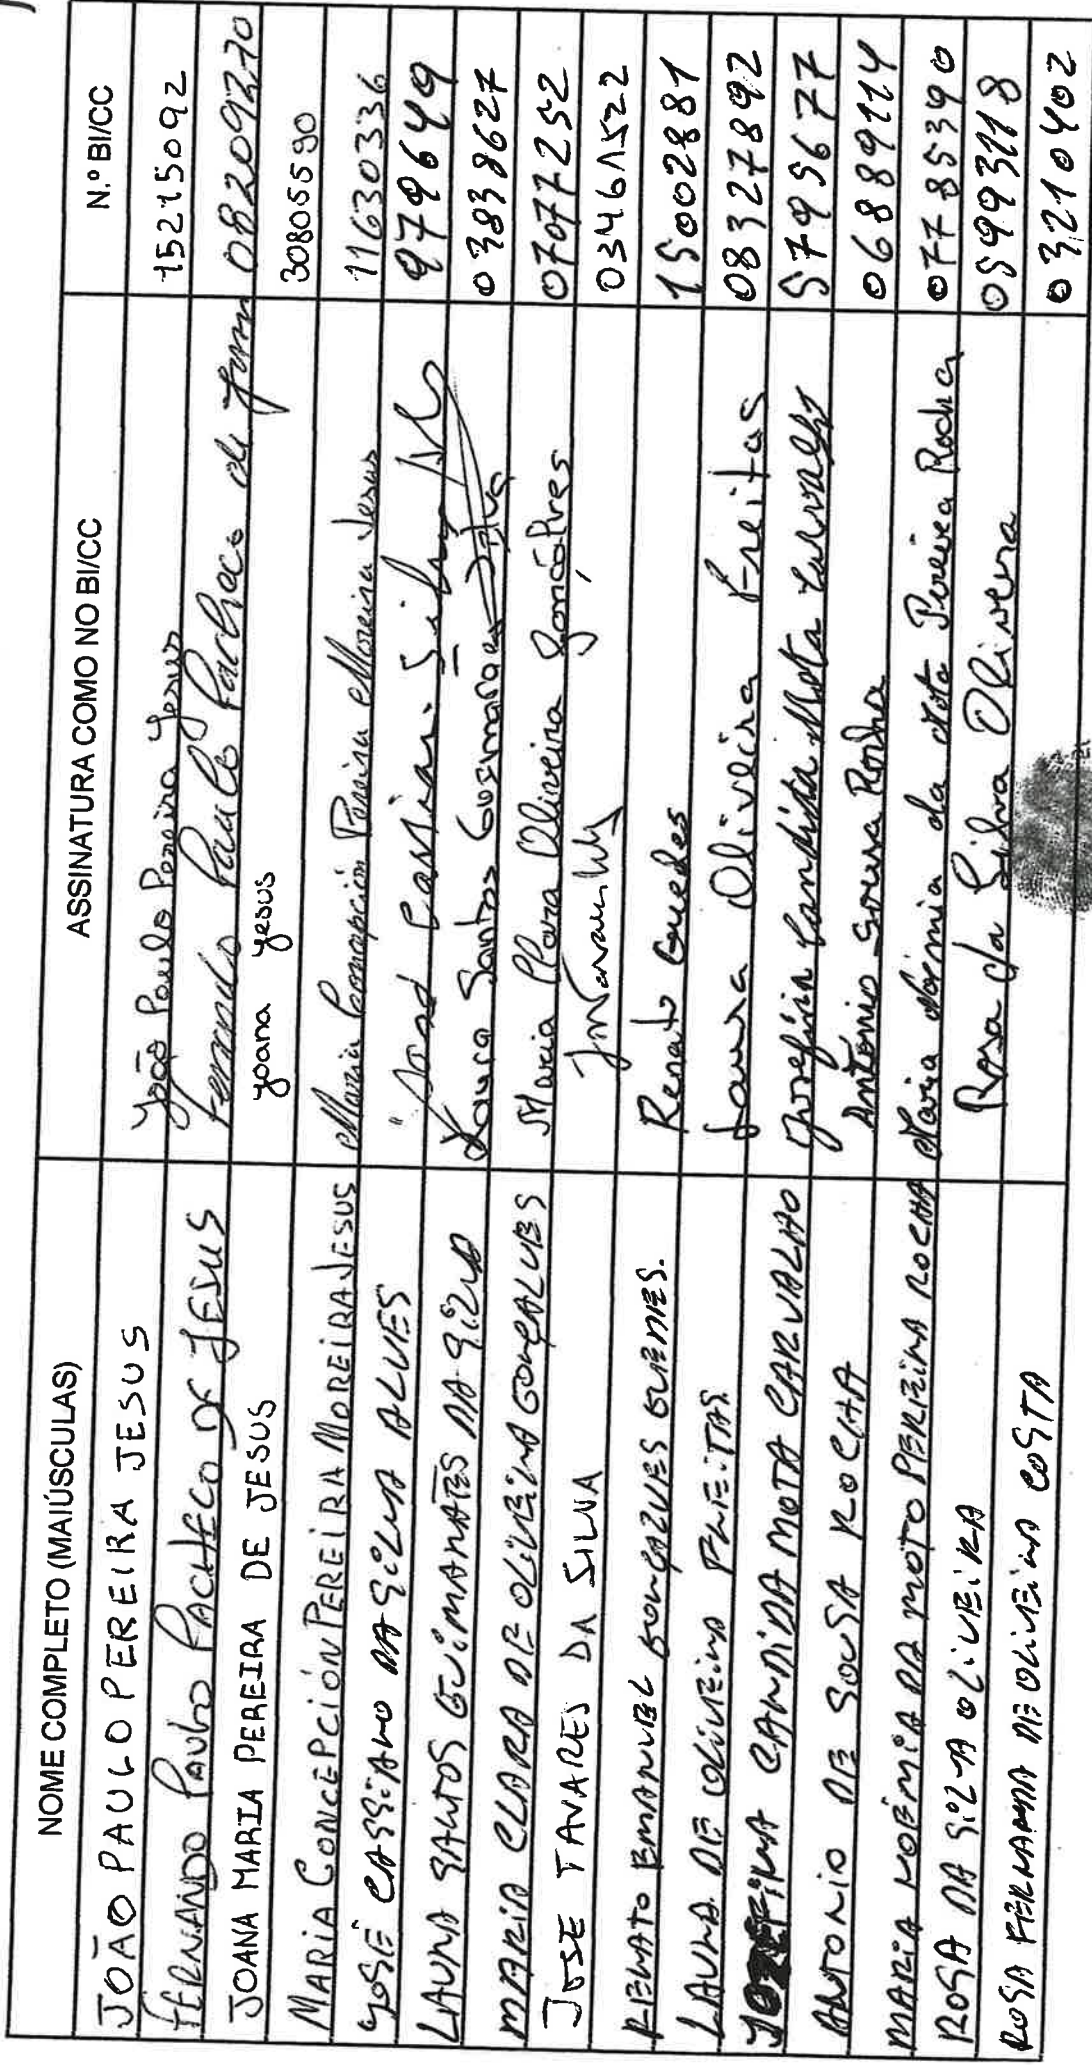 NOME COMPLETO (MAIÚSCULAS) ASSINATURA COMO NO BI/CC N.º BI/CC
JOÃO PAULO PEREIRA JESUS João Paulo Pereira Jesus 15215092
FERNANDO PAULO PACHECO DE JESUS Fernando Paulo Pacheco de 08209270
JOANA MARIA PEREIRA DE JESUS Joana Jesus 30805590
MARIA CONCEPCIÓN PEREIRA MOREIRA JESUS Maria Concepción Pereira Moreira Jesus 11630336
JOSÉ CASSIANO DA SILVA ALVES José Cassiano Silva 9799649
LAURA SANTOS GUIMARÃES DA SILVA Laura Santos Guimarães Silva 0383627
MARIA CLARA DE OLIVEIRA GONÇALVES Maria Clara Oliveira Gonçalves 07077252
JOSE TAVARES DA SILVA 03461522
RENATO EMANUEL GONÇALVES GUEDES. Renato Guedes 15002881
LAURA DE OLIVEIRA FREITAS Laura Oliveira Freitas 08327892
JOZEFINA CANDIDA MOTA CARVALHO Josefina Candida Mota 5795677
ANTONIO DE SOUSA ROCHA António Sousa Rocha 06889114
MARIA NOÉMIA DA MOTO PEREIRA ROCHA Maria Noémia da Mota Pereira Rocha 07785390
ROSA DA SILVA OLIVEIRA Rosa da Silva Oliveira 05993118
ROSA FERNANDA DE OLIVEIRA COSTA 03210402